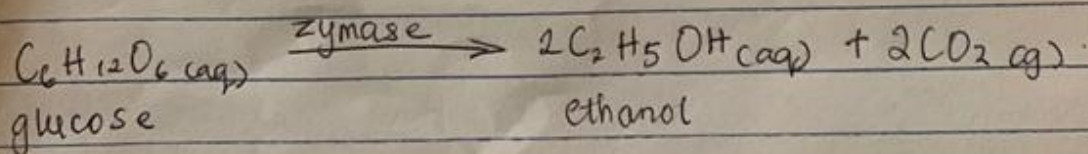 C₆H₁₂O₆ (aq) zymase → 2C₂H₅OH (aq) + 2CO₂ (g)
glucose ethanol